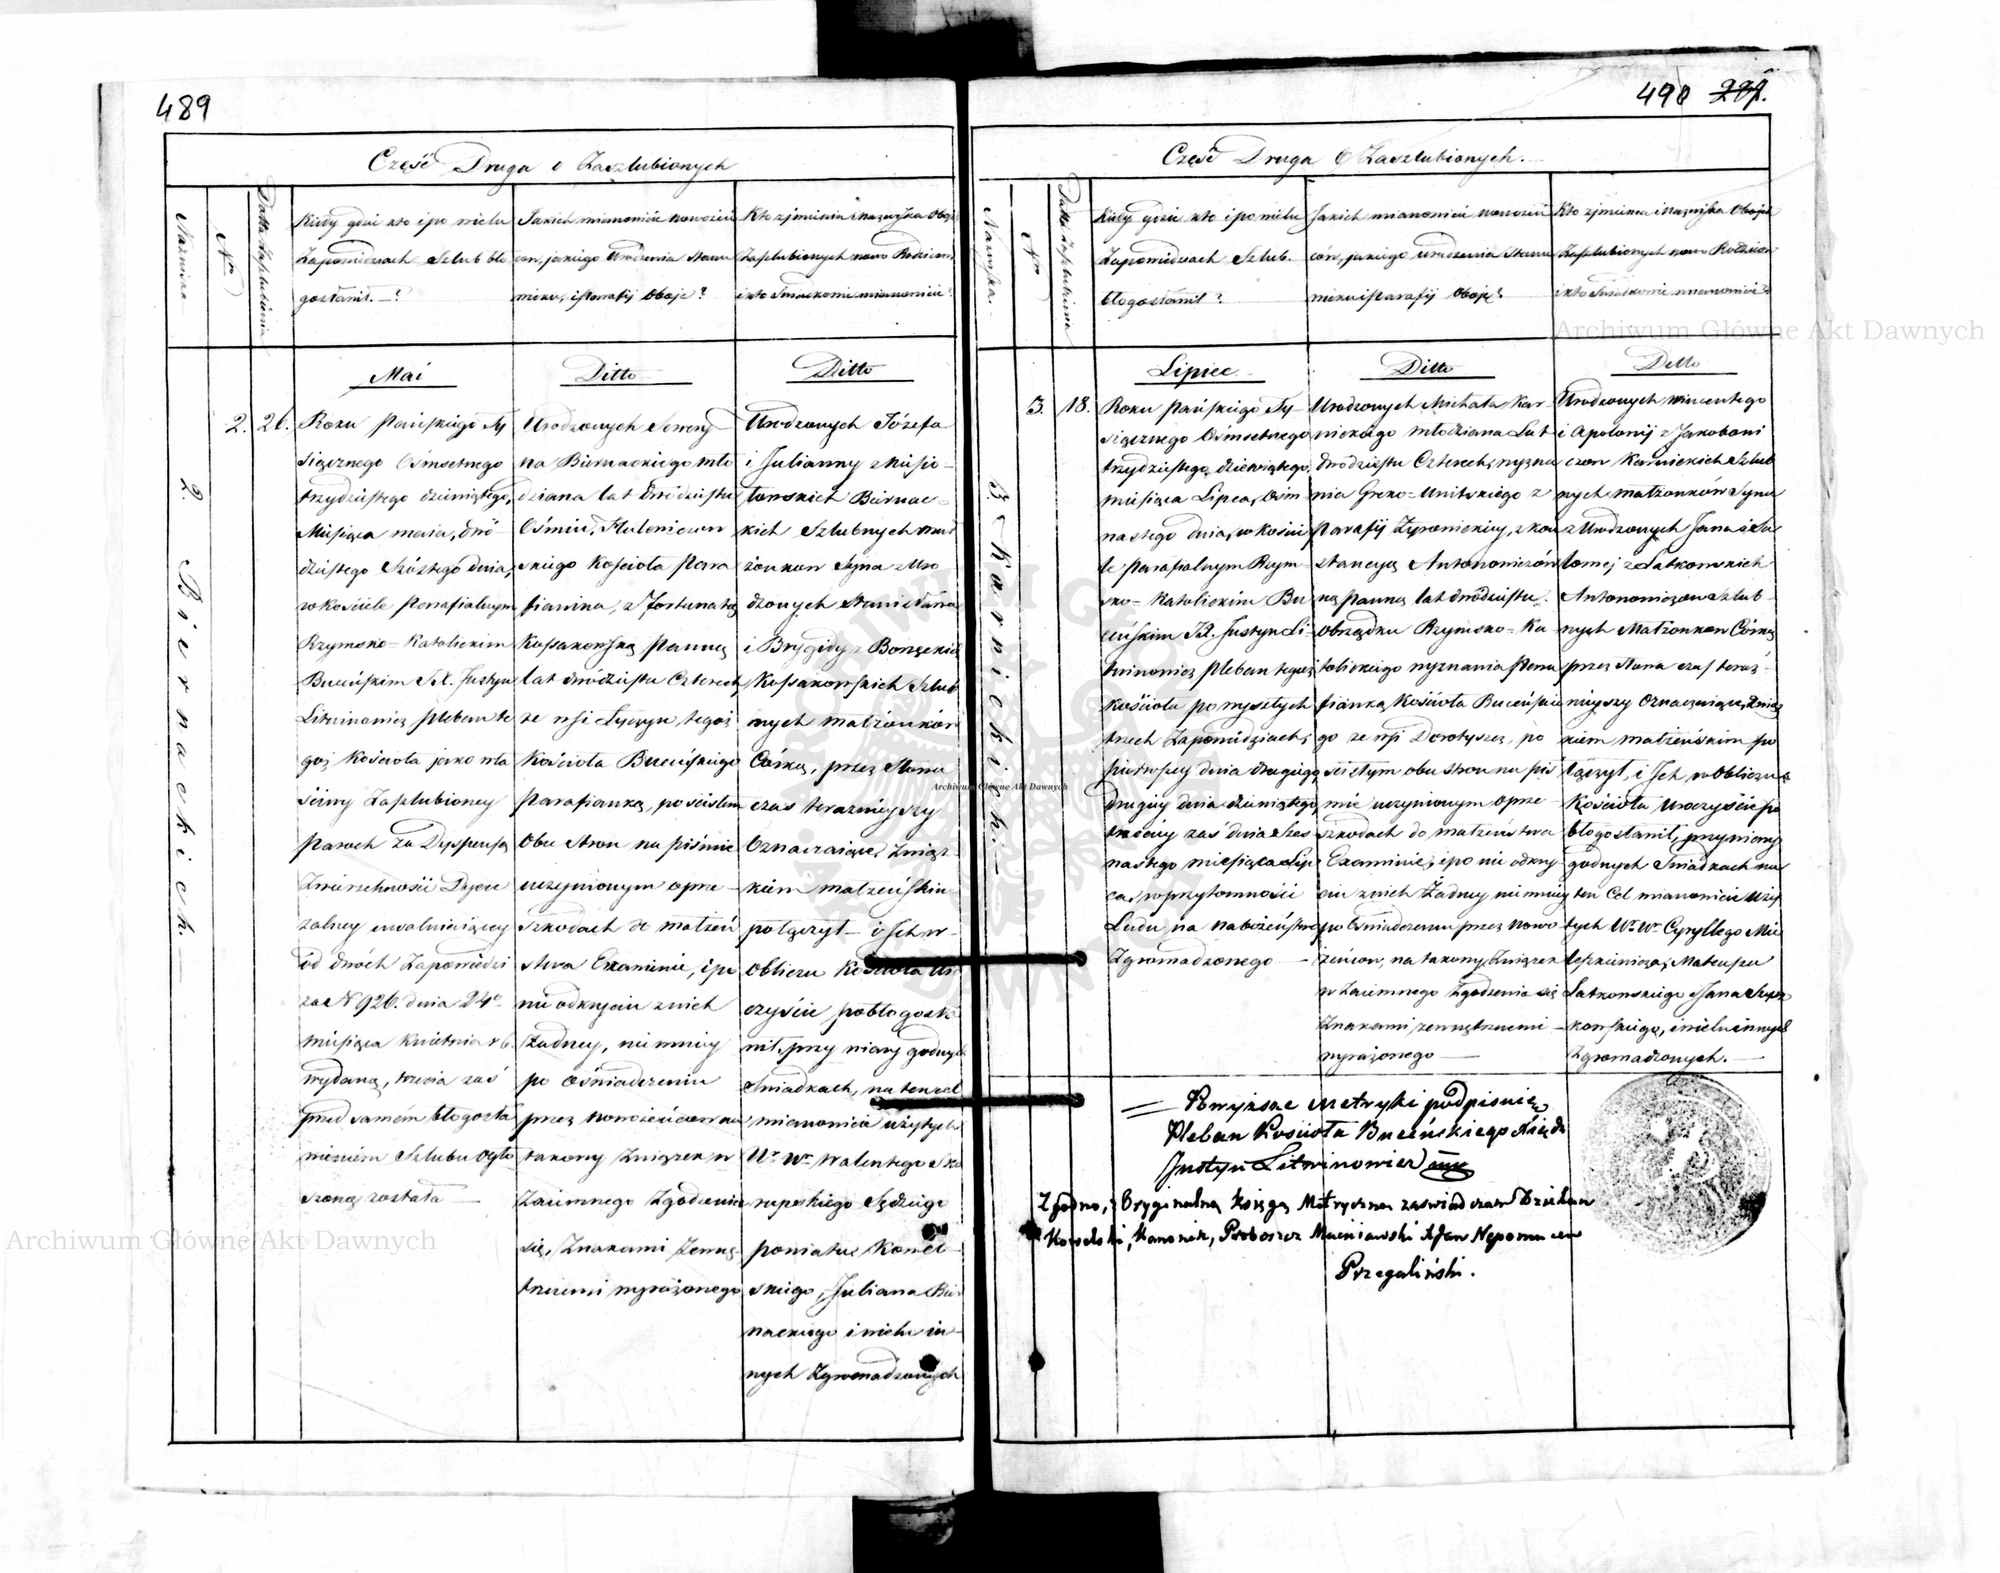 489
Część Druga o Zaszlubionych
Nazwiska
Nr
Datta Zaszlubienia
Kiedy gdzie kto i po wielu
Zapowiedziach Szlub bło
gosławił. — ?
Jakich mianowicie nowożeń
ców, jakiego Urodzenia Stanu
wieku, i Parafij Oboje?
Kto z imienia i nazwiska Oboje
Zaszlubionych nowo Rodzicami
i kto Świadkami mianowicie?
Mai
Ditto
Ditto
2.
26.
2. Biernackich.
Roku Pańskiego Ty
siącznego Ośmsetnego
trzydziestego dziewiątego,
Miesiąca maia, dwó
dziestego Szóstego dnia,
w Kościele Parafialnym
Rzymsko-Katolickim
Buceńskim JX. Justyn
Litwinowicz Pleban te
goż Kościoła jako wła
ściwy Zaszlubioney
Paroch za Dyspensą
Zwierzchności Dyece
zalney uwalniaiącey
od dwóch Zapowiedzi
za N 926. dnia 24o
miesiąca Kwietnia r b.
wydaną, trzecia zaś
przed samém błogosła
wieniem Szlubu ogło
szoną została —
Urodzonych Sewery
na Biernackiego mło
dziana lat dwódziestu
Ośmiu,
skiego Kościoła Para
fianina, z Fortunatą
Kossakowską Panną
lat dwódziestu Czterech
ze wsi Łyszczyn, tegoż
Kościoła Buceńskiego
Parafianką, po ścisłem
Obu Stron na piśmie
uczynionym o prze
szkodach do małżeń
stwa Examinie, i po
nie odkryciu z nich
Żadney, niemniey
po oświadczeniu
przez Nowożeńcow na
takowy Związek w
Zaiemnego Zgodzenia
się, Znakami Zewnę
trznemi wyrażonego
Urodzonych Józefa
i Julianny z Misio-
łowskich Biernac-
kich Szlubnych mał
żonkow Syna z Uro
dzonych Stanisława
i Brygidy z Borzęckich
Kossakowskich Szlub
nych małżonków
Córką, przez Słowa
czas teraznieyszy
Oznaczaiące, Związ-
kiem małżeńskim
połączył — i Ich w
obliczu Kościoła Uro
czyście pobłogosła
wił, przy wiary godnych
Świadkach, na ten cel
mianowicie użytych
Wr Wr Walentego Sko
rupskiego Sędziego
powiatu Kowel-
skiego, Juliana Bier
nackiego i wielu in-
nych Zgromadzonych
490 ~~
Część Druga O Zaszlubionych.
Nazwiska.
Nr
Datta Zaszlubienia
Kiedy gdzie kto i po wielu
Zapowiedziach Szlub.
błogosławił?
Jakich mianowicie nowożeń
ców, jakiego urodzenia Stanu
wieku i Parafij Oboje?
Kto z imienia i Nazwiska Oboje
Zaszlubionych nowo Rodzicami
i kto Świadkami mianowicie?
Lipiec
Ditto
Ditto
3.
18.
3. Karnickich.
Roku Pańskiego Ty-
siącznego Ośmsetnego
trzydziestego dziewiątego
miesiąca Lipca, Ośm
nastego dnia, w Kości
le Parafialnym Rzym
sko-Katolickim Bu
ceńskim JX. Justyn Li
twinowicz Pleban tegoż
Kościoła po wyszłych
trzech Zapowiedziach,
pierwszey dnia drugiego,
drugiey dnia dziewiątego,
trzeciey zaś dnia Szes
nastego miesiąca Lip
ca, w przytomności
Ludu na nabożeństwo
Zgromadzonego —
Urodzonych Michała Kar
nickiego młodziana Lat
dwódziestu Czterech, wyzna
nia Greko-Unitskiego z
Parafij z Kon
stancyą Antonowiczów
ną Panną lat dwódziestu
obrządku Rzymsko-Ka
tolickiego wyznania Para
fianką Kościoła Buceńskie
go ze wsi Dorotyszcz, po
ścisłym obu stron na piś
mie uczynionym o prze-
szkodach do małżeństwa
Examinie, i po nie odkry
ciu z nich Żadney niemniey
po Oświadczeniu przez Nowo
żeńcow, na takowy Związek
w Zaiemnego Zgodzenia się
Znakami zewnętrznemi —
wyrażonego —
Urodzonych Wincentego
i Apolonij z Jakobowi
czow Karnickich Szlub
nych małżonków Syna
z Urodzonych Jana i Sa
lomej z Łatkowskich
Antonowiczow Szlub-
nych Małżonkow Córką
przez Słowa czas teraź-
nieyszy Oznaczaiące, Związ
kiem małżeńskim po
łączył, i Ich w Obliczu
Kościoła Uroczyście po
błogosławił, przy wiary
godnych Świadkach na
ten Cel mianowicie uży
tych Wr Wr Cyryllego Mie
leszkiewicza, Mateusza
Łatkowskiego Jana
kowskiego, i wielu innych
Zgromadzonych. —
= Powyższe Metryki podpisuię
Pleban Kościoła Buceńskiego Xiądz
Justyn Litwinowicz
Zgodno, z Oryginalną Księgą Metryczną zaświadczam Dziekan
Kowelski, Kanonik, Proboszcz Maciiowski X Jan Nepomucen
Przegaliński.
Archiwum Główne Akt Dawnych
Archiwum Główne Akt Dawnych
Archiwum Główne Akt Dawnych